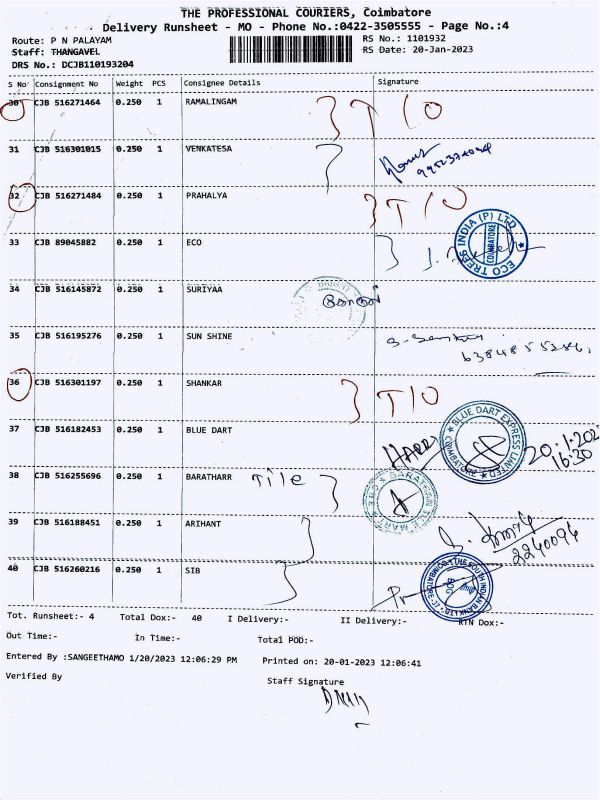 THE PROFESSIONAL COURIERS, Coimbatore
Delivery Runsheet - MO - Phone No.:0422-3505555 - Page No.:4
Route: P N PALAYAM
RS No.: 1101932
Staff: THANGAVEL
RS Date: 20-Jan-2023
DRS No.: DCJB110193204
S No Consignment No Weight PCS Consignee Details Signature
30 CJB 516271464 0.250 1 RAMALINGAM T I O
31 CJB 516301015 0.250 1 VENKATESA
32 CJB 516271484 0.250 1 PRAHALYA T I O
33 CJB 89045882 0.250 1 ECO
ECO TREES INDIA (P) LTD
COIMBATORE
34 CJB 516145872 0.250 1 SURIYAA
35 CJB 516195276 0.250 1 SUN SHINE
36 CJB 516301197 0.250 1 SHANKAR T I O
37 CJB 516182453 0.250 1 BLUE DART HARI
BLUE DART EXPRESS LIMITED
COIMBATORE
20.1.202
16:30
38 CJB 516255696 0.250 1 BARATHARR Tile
39 CJB 516188451 0.250 1 ARIHANT
2240096
40 CJB 516260216 0.250 1 SIB
Tot. Runsheet:- 4 Total Dox:- 40 I Delivery:- II Delivery:- RTN Dox:-
Out Time:- In Time:- Total POD:-
Entered By :SANGEETHAMO 1/20/2023 12:06:29 PM Printed on: 20-01-2023 12:06:41
Verified By Staff Signature